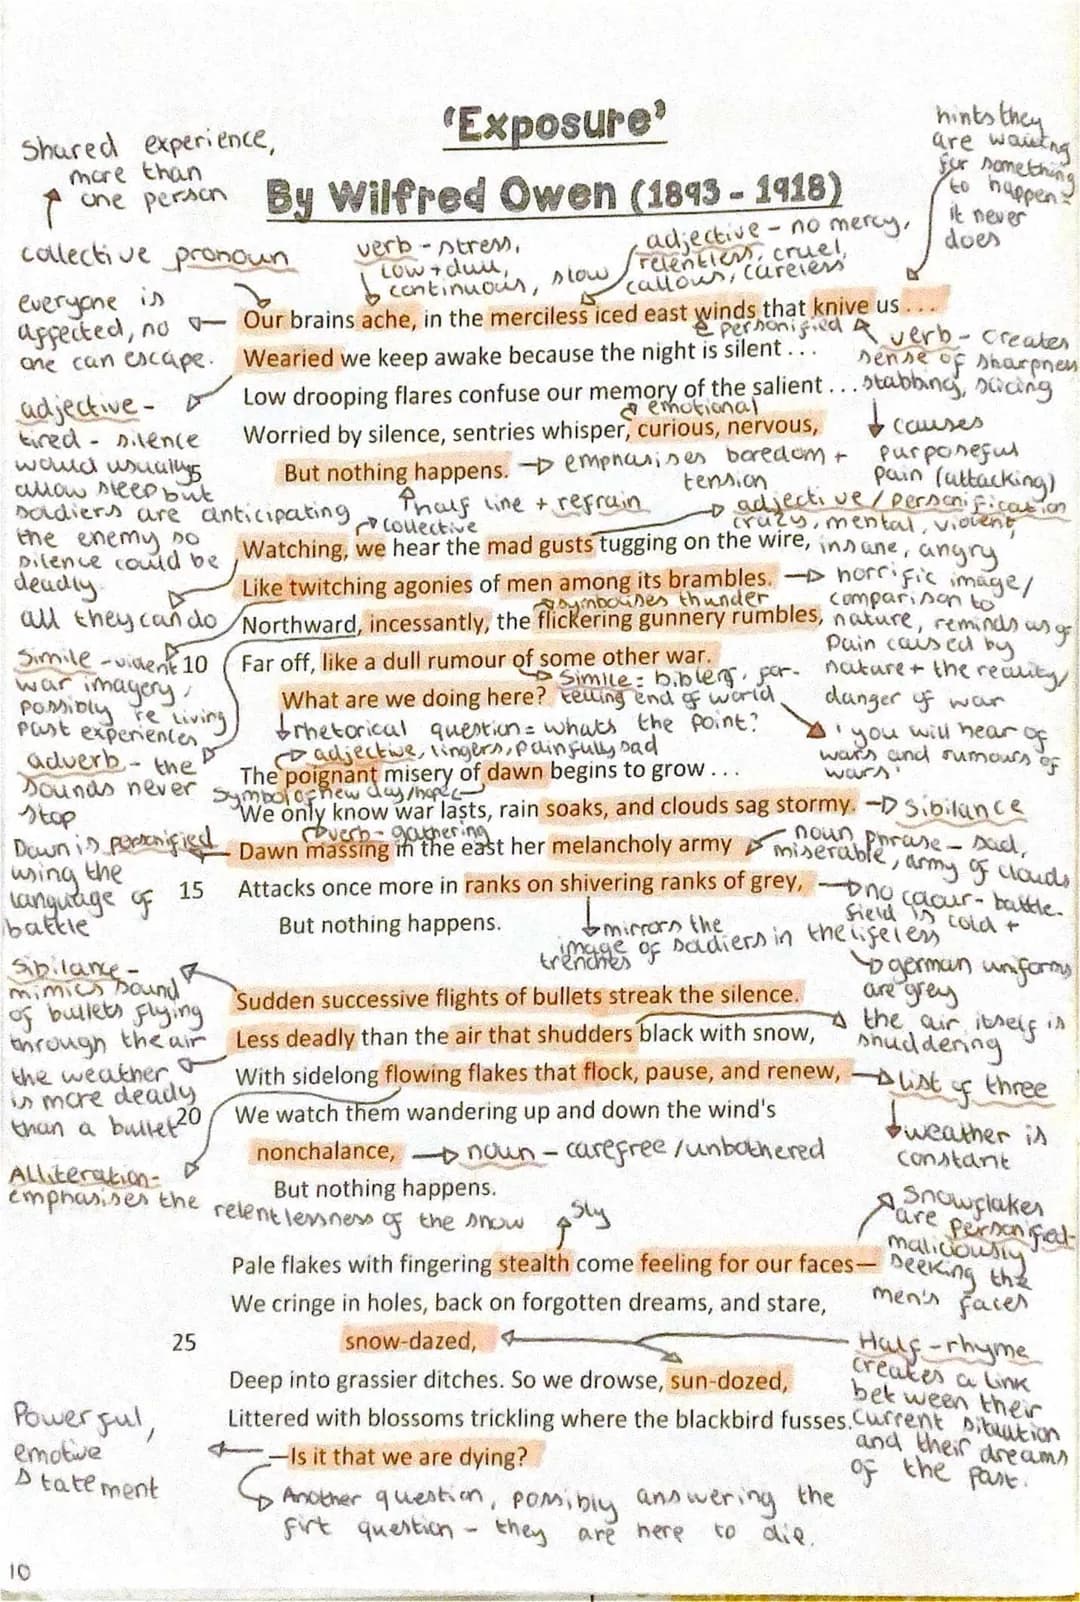 'Exposure'
By Wilfred Owen (1893 - 1918)
Shared experience,
more than
one person
collective pronoun
verb - stress,
low + dull,
continuous, slow
adjective - no mercy,
relentless, cruel,
callous, careless
hints they
are waiting
for something
to happen -
it never
does
everyone is
affected, no
one can escape.
Our brains ache, in the merciless iced east winds that knive us . . .
personified
verb - creates
sense of sharpness
stabbing, slicing
causes
purposeful
pain (attacking)
Wearied we keep awake because the night is silent . . .
Low drooping flares confuse our memory of the salient . . .
emotional
Worried by silence, sentries whisper, curious, nervous,
5
But nothing happens.
emphasises boredom +
tension
half line + refrain
adjective -
tired - silence
would usually
allow sleep but
soldiers are anticipating
the enemy so
silence could be
deadly.
collective
adjective / personification
crazy, mental, violent,
insane, angry
Watching, we hear the mad gusts tugging on the wire,
Like twitching agonies of men among its brambles.
horrific image/
comparison to
nature, reminds us of
pain caused by
nature + the reality/
danger of war
all they can do
symbolises thunder
Northward, incessantly, the flickering gunnery rumbles,
Simile - violent
war imagery,
possibly re living
past experiences
10
Far off, like a dull rumour of some other war.
Simile = bible ref, for-
telling end of world
'you will hear of
wars and rumours of
wars'
What are we doing here?
rhetorical question = whats the point?
adverb - the
sounds never
stop
adjective, lingers, painfully sad
The poignant misery of dawn begins to grow . . .
Symbol of new day/hope
We only know war lasts, rain soaks, and clouds sag stormy.
Sibilance
verb - gathering
Dawn is personified
using the
language of
battle
Dawn massing in the east her melancholy army
noun phrase - sad,
miserable, army of clouds
15
Attacks once more in ranks on shivering ranks of grey,
no colour - battle-
field is cold +
lifeless
german uniforms
are grey
But nothing happens.
mirrors the
image of soldiers in the
trenches
Sibilance -
mimics sound
of bullets flying
through the air
Sudden successive flights of bullets streak the silence.
Less deadly than the air that shudders black with snow,
the air itself is
shuddering
the weather
is more deady
than a bullet
With sidelong flowing flakes that flock, pause, and renew,
list of three
weather is
constant
20
We watch them wandering up and down the wind's
nonchalance,
noun - carefree /unbothered
But nothing happens.
Alliteration -
emphasises the
relentlessness of the snow
sly
Snowflakes
are personified -
maliciously
seeking the
men's faces
Pale flakes with fingering stealth come feeling for our faces—
We cringe in holes, back on forgotten dreams, and stare,
25
snow-dazed,
Half-rhyme
creates a link
between their
current situation
and their dreams
of the past.
Deep into grassier ditches. So we drowse, sun-dozed,
Littered with blossoms trickling where the blackbird fusses.
—Is it that we are dying?
Powerful,
emotive
statement
Another question, possibly answering the
firt question - they are here to die.
10